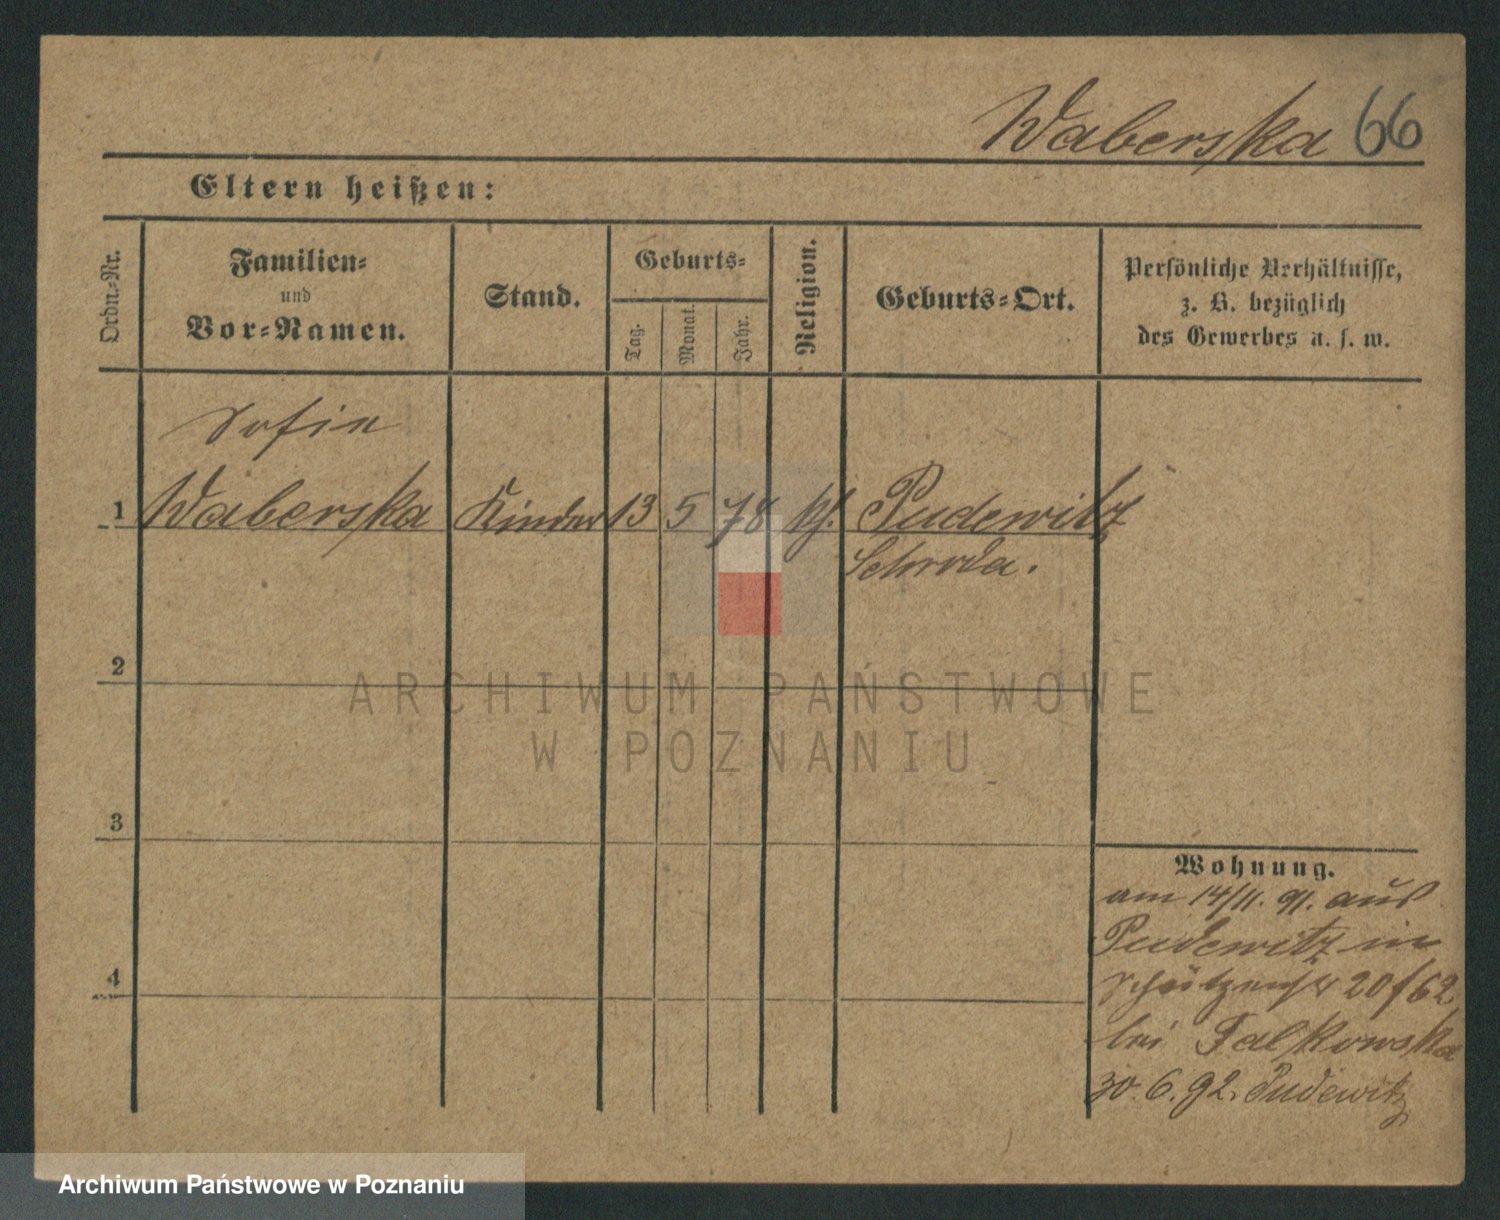 Waberska 66
Eltern heißen:
Ordn.-Nr.
Familien-
und
Vor-Namen.
Stand.
Geburts-
Tag.
Monat.
Jahr.
Religion.
Geburts-Ort.
Persönliche Verhältnisse,
z. B. bezüglich
des Gewerbes u. s. w.
Sofie
1 Waberska Kinder 13 5 78 kf. Pudewitz
Schroda.
2
3
4
Wohnung.
am 14/11. 91. aus
Pudewitz in
Schützenstr 20/62
bei Falkowska
30. 6. 92. Pudewitz
ARCHIWUM PAŃSTWOWE
W POZNANIU
Archiwum Państwowe w Poznaniu